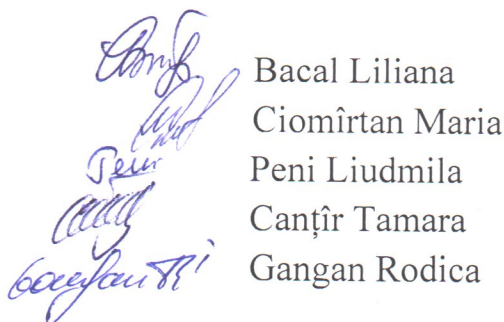 Bacal Liliana
Ciomîrtan Maria
Peni Liudmila
Canțîr Tamara
Gangan Rodica